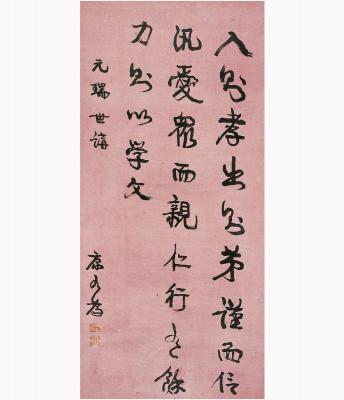 入则孝出则弟謹而信
汎愛眾而親仁行有餘
力则以学文
元瑞世講
康有為